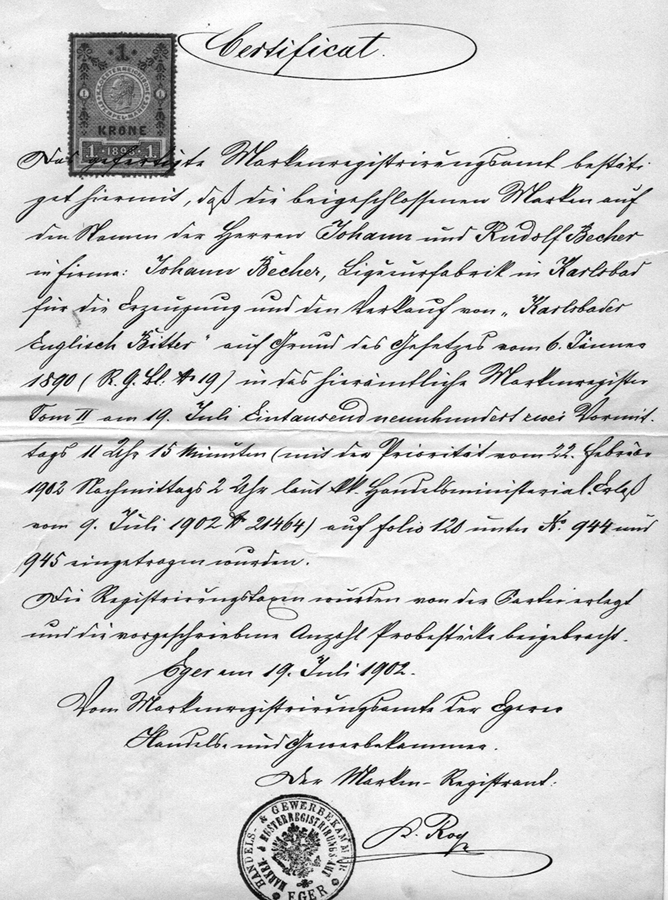 Certificat.
1
KRONE
1 1898 1
Das gefertigte Markenregistrirungsamt bestäti-
get hiermit, daß die beigeschlossenen Marken auf
den Namen der Herren Johann und Rudolf Becher
in Firma: Johann Becher, Liqueurfabrik in Karlsbad
für die Erzeugung und den Verkauf von „Karlsbader
Englisch Bitter" auf Grund des Gesetzes vom 6. Jänner
1890 (R. G. Bl. № 19) in das hierämtliche Markenregister
Tom II am 19. Juli Eintausendneunhundertzwei Vormit-
tags 11 Uhr 15 Minuten (mit der Priorität vom 22. Februar
1902 Nachmittags 2 Uhr laut kk. Handelsministerial-Erlaß
vom 9. Juli 1902 № 21464) auf folio 120 unter № 944 und
945 eingetragen wurden.
Die Registrirungstaxen wurden von der Partei erlegt
und die vorgeschriebene Anzahl Probestücke beigebracht.
Eger am 19. Juli 1902.
Vom Markenregistrirungsamte der Egerer
Handels- und Gewerbekammer.
Der Marken-Registrant:
HANDELS- & GEWERBEKAMMER
MARKEN- & MUSTERREGISTRIRUNGS-AMT
EGER